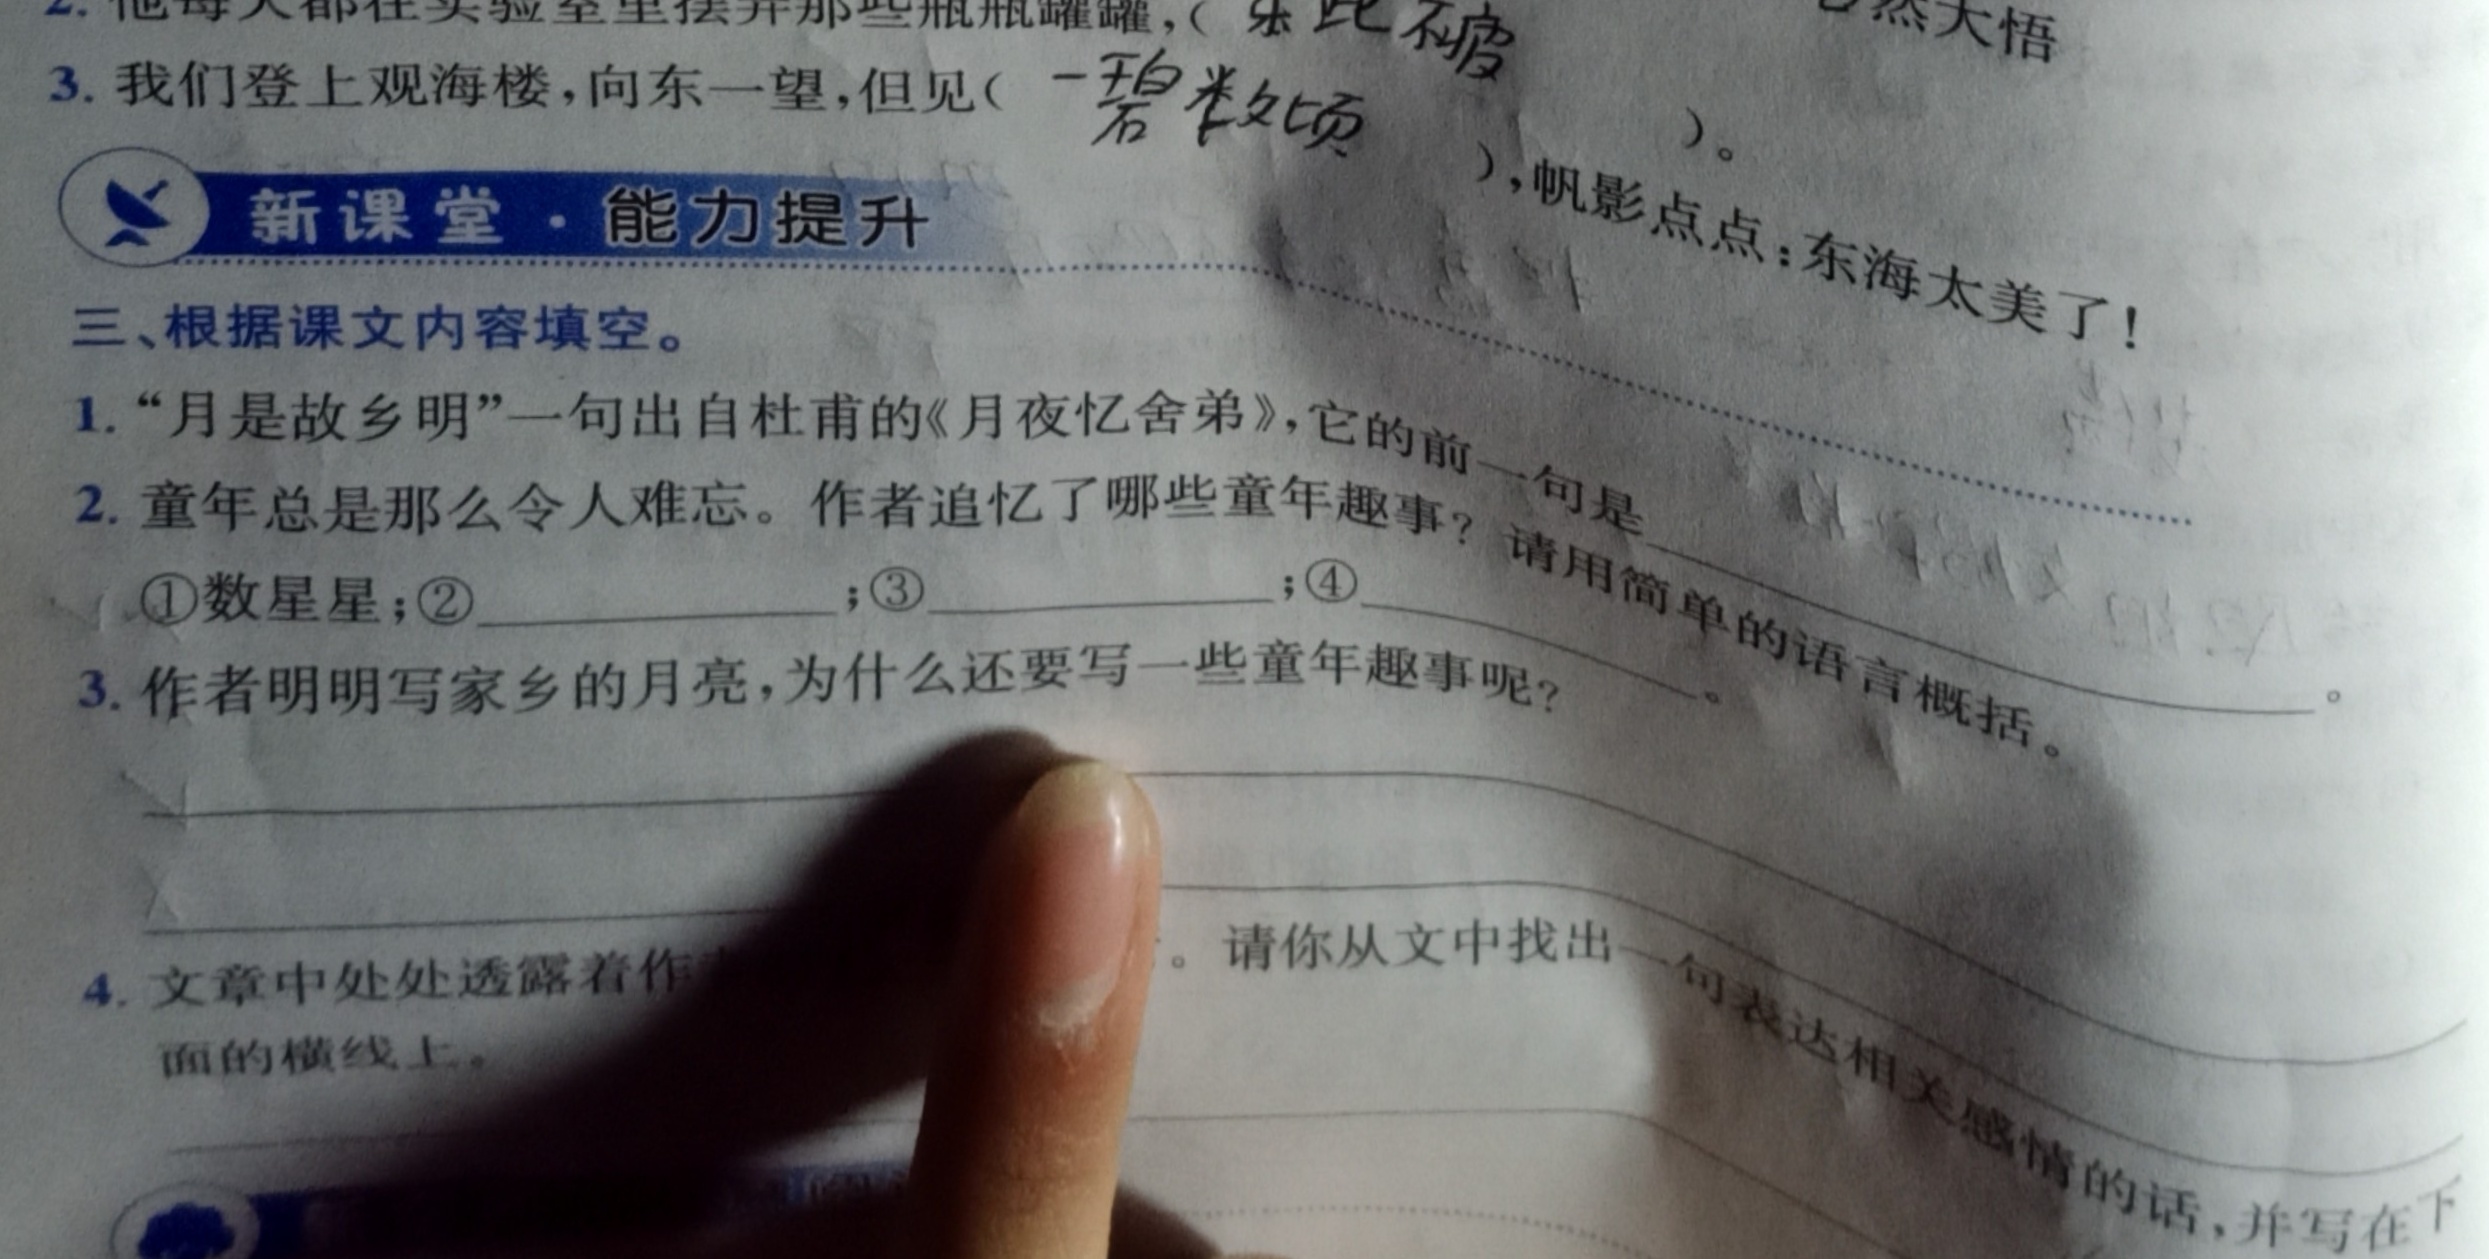 2. 他每天都在实验室里摆弄那些瓶瓶罐罐,( 乐此不疲 )。
然大悟
3. 我们登上观海楼,向东一望,但见( 一碧数顷 ),帆影点点:东海太美了!
新课堂·能力提升
三、根据课文内容填空。
1. “月是故乡明”一句出自杜甫的《月夜忆舍弟》,它的前一句是____。
2. 童年总是那么令人难忘。作者追忆了哪些童年趣事?请用简单的语言概括。
①数星星;②____;③____;④____。
3. 作者明明写家乡的月亮,为什么还要写一些童年趣事呢?
4. 文章中处处透露着作 。请你从文中找出一句表达相关感情的话,并写在下
面的横线上。